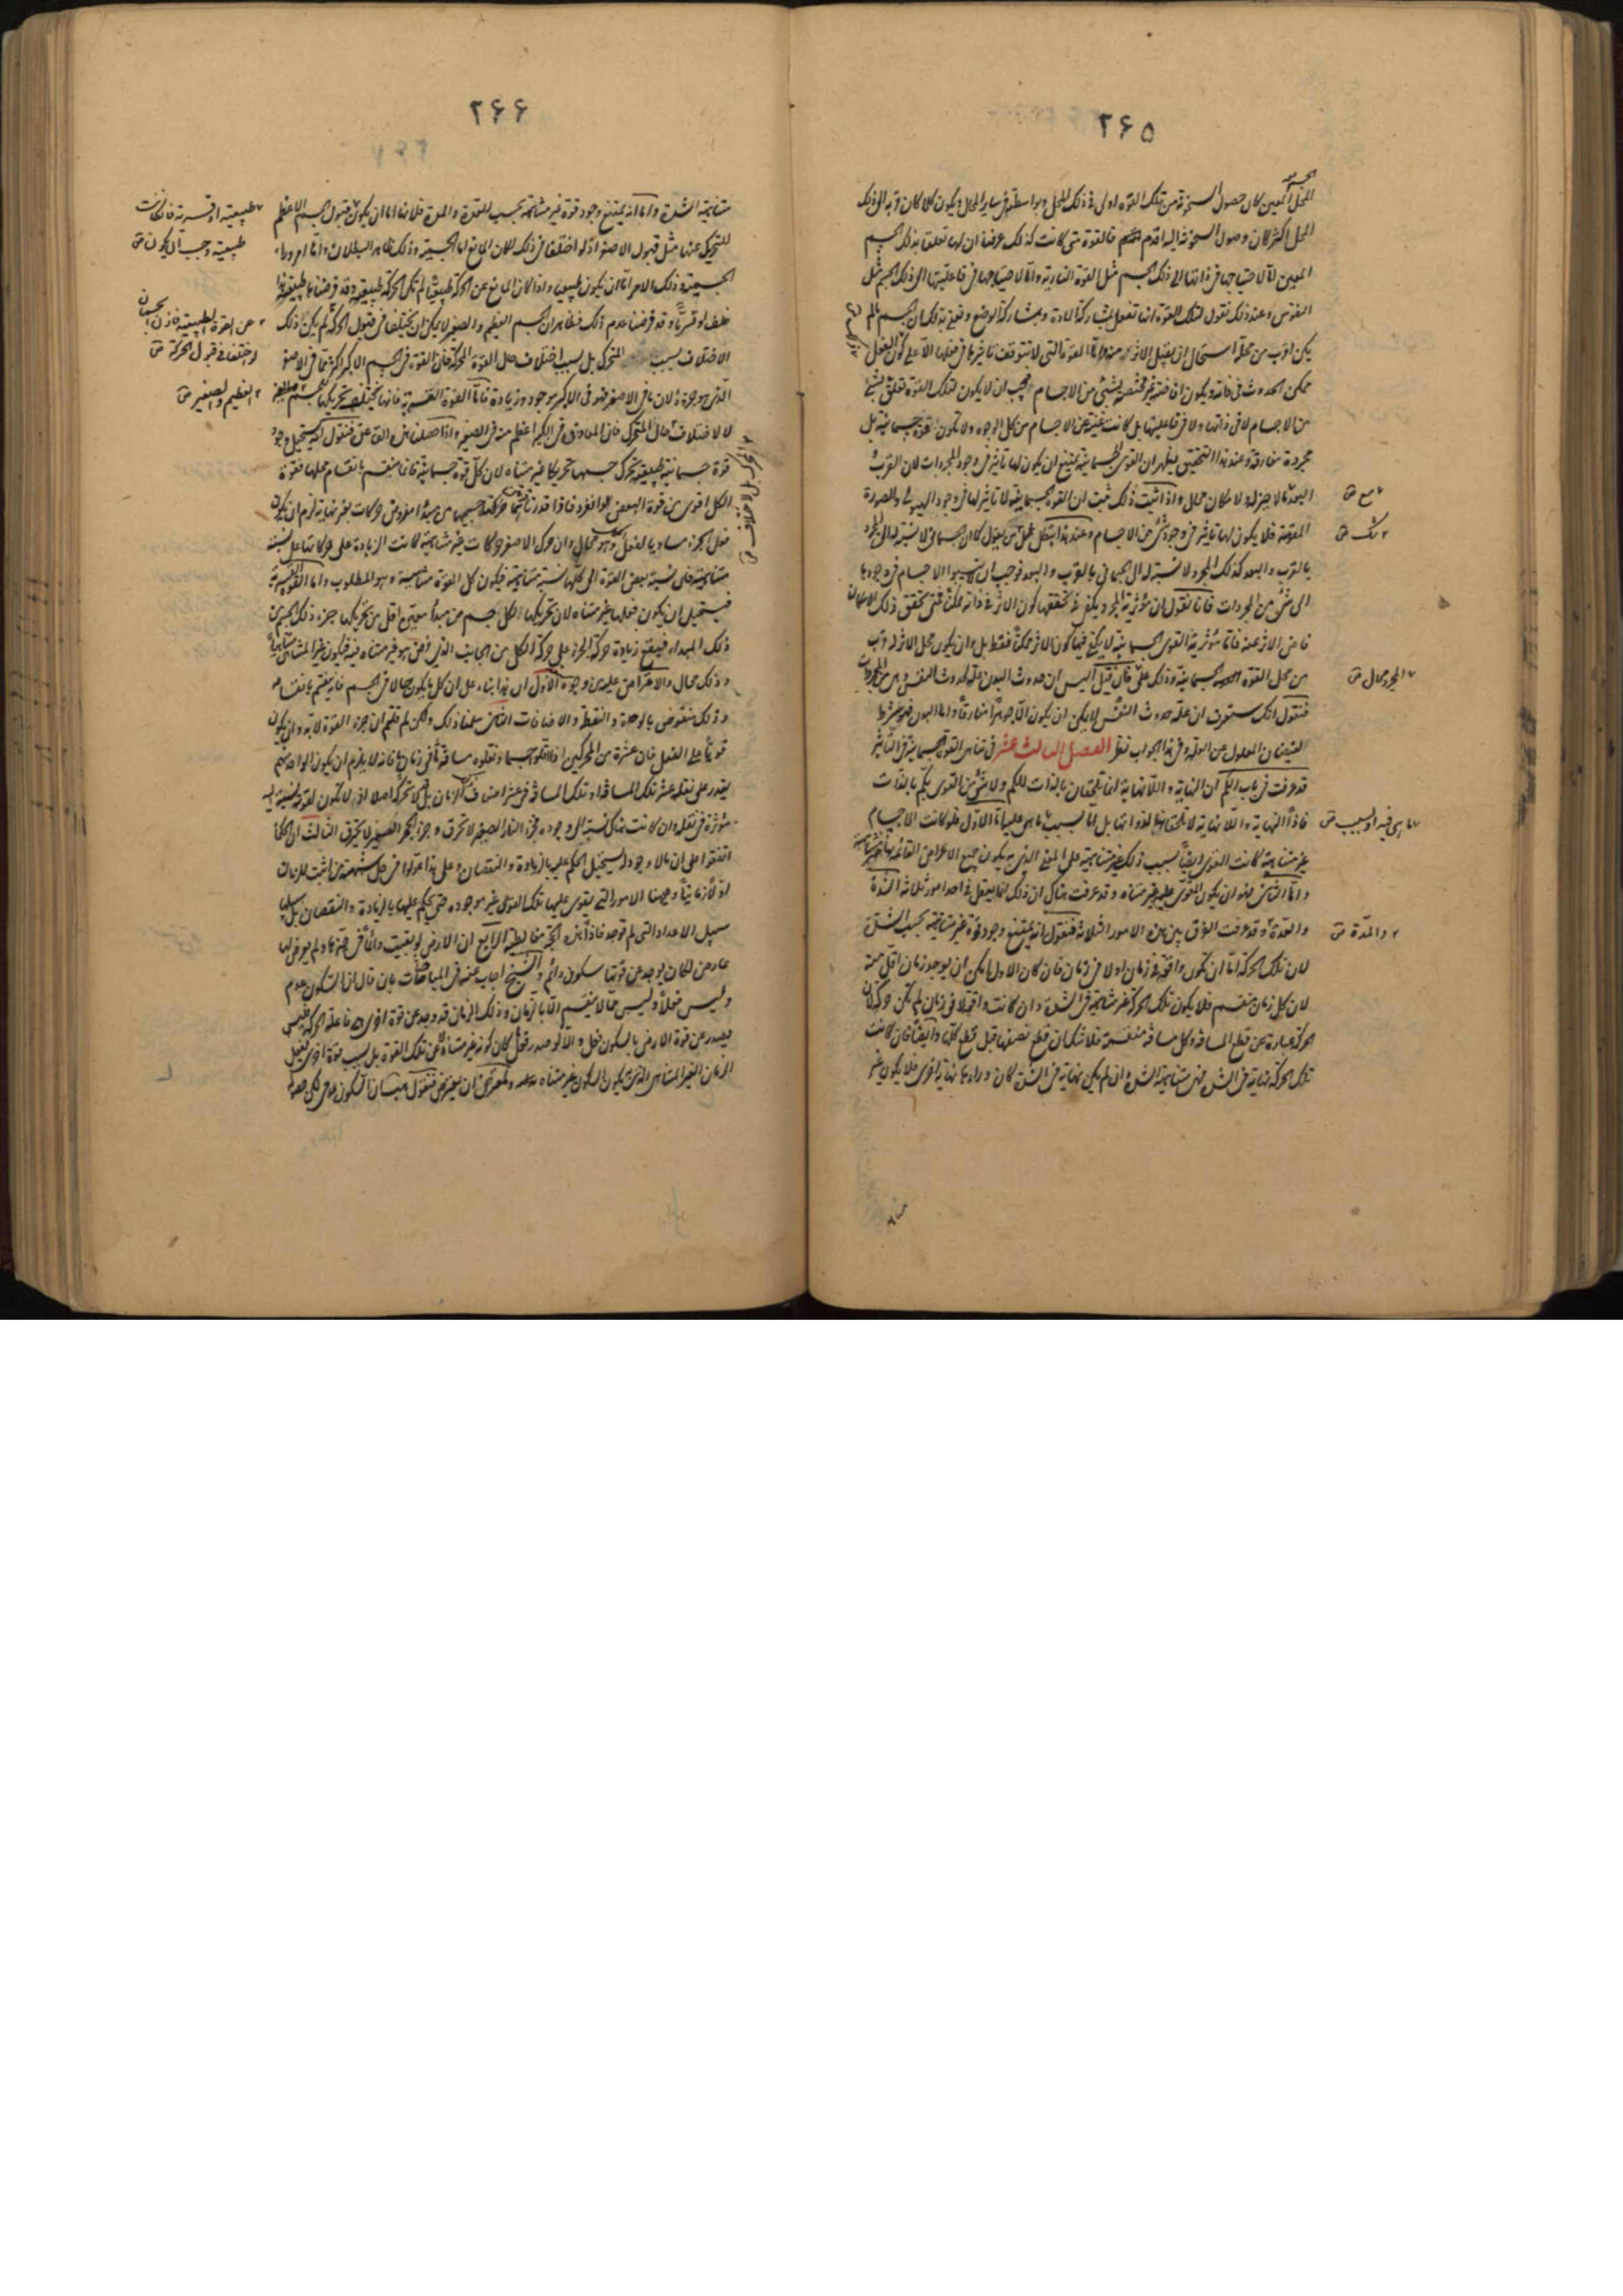 ٢۶۵
المحل المعين كان حصول السخونة من تلك القوة اولى فى ذلك المحل وبواسطته فى ساير المحال ويكون كلما كان قربه الى ذلك
المحل اكثر كان وصول السخونة اليه اقدم فالقوة متى كانت كذلك عرفنا ان لها تعلقا بذلك الجسم
المعين اما لاحتياجها فى ذاتها الى ذلك الجسم مثل القوة النارية واما لاحتياجها فى فاعليتها الى ذلك الجسم مثل
النفوس وعند ذلك نقول لتلك القوة انها تفعل بمشاركة المادة وبمشاركة الوضع ونعنى به ذلك ان الجسم ما لم
يكن اقرب من محله استحال ان يقبل الاثر منه واما القوة التى لا تتوقف تاثيرها فى فعلها الا على كون المنفعل
ممكن الحدوث فى ذاته ويكون افاضته غير مختصة بشئ من الاجسام فيجب ان لا يكون لتلك القوة تعلق بشئ
من الاجسام لا فى ذاتها ولا فى فاعليتها بل كانت غنية عن الاجسام من كل الوجوه ولا تكون قوة جسمانية بل
مجردة مفارقة وعند هذا التحقيق يظهر ان القوى الجسمانية يمتنع ان يكون لها تاثير فى وجود المجردات لان القرب و
البعد مما لا حيز له ولا مكان محال واذا ثبت ذلك ثبت ان القوة الجسمانية لا تاثير لها فى وجود الهيولى والصورة
المقومة فلا يكون لها تاثير فى وجود شئ من الاجسام وعند هذا تبطل قول من يقول كما ان الجسمانى لا نسبة له الى المجرد
بالقرب والبعد كذلك المجرد لا نسبة له الى الجسمانى بالقرب والبعد فوجب ان لا يستند الاجسام فى وجودها
الى شئ من المجردات فانا نقول ان مؤثرية المجرد يكفى فى تحققها كون الاثر فى ذاته ممكنا فمتى تحقق ذلك الامكان
فاض الاثر عنه فاما مؤثرية القوى الجسمانية لا يكفى فيها كون الاثر ممكنا فقط بل وان يكون محل الاثر له قرب
من محل القوة الجسمانية وذلك على فان قيل اليس ان حدوث البدن علة لحدوث النفس وهى من المجردات
فنقول انك ستعرف ان علة حدوث النفس لا يمكن ان يكون الا جوهرا مفارقا واما البدن فهو شرط
لفيضان المعلول عن العلة وفى هذا الجواب نظر الفصل الثالث عشر فى تناهى القوة الجسمانية فى التاثير
قد عرفت فى باب الكم ان النهاية واللانهاية انما يلحقان بالذات للكم ولا شئ من القوى بكم بالذات
فاذا النهاية واللانهاية لا تلحقانها لذواتها بل لما بسبب ما هى عليه اما الاول فلو كانت الاجسام
غير متناهية كانت القوى ايضا بسبب ذلك غير متناهية على المعنى الذى به يكون جميع الاعراض القائمة بها غير متناهية
واما الثانى فهو ان يكون المقوى عليه غير متناه وقد عرفت هناك ان ذلك انما يعقل فى احد امور ثلاثة الشدة
والعدة وقد عرفت الفرق بين هذه الامور الثلاثة فنقول انه يمتنع وجود قوة غير متناهية بحسب الشدة
لان تلك الحركة اما ان تكون واقعة فى زمان او لا فى زمان فان كان الاول امكن ان يوجد زمان اقل منه
لان كل زمان منقسم فلا يكون تلك الحركة غير متناهية فى الشدة وان كانت واقعة لا فى زمان لم تكن حركة لان
الحركة عبارة عن قطع المسافة وكل مسافة منقسمة فلا شك ان قطع نصفها قبل قطع كلها وايضا فان كانت
تلك الحركة نهاية فى الشدة فهى متناهية الشدة وان لم يكن نهاية فى الشدة كان وراءها نهاية اخرى فلا يكون غير
مع
تلك
المجرد محال
ما هى فيه او بسبب
والمدة
٢۶۶
متناهية الشدة واما انه يمتنع وجود قوة غير متناهية بحسب العدة والمدة فلانها اما ان يكون قبول الجسم الاعظم
للتحريك عنها مثل قبول الاصغر اذ لو اختلفا فى ذلك لكان المانع اما الجسمية وذلك ظاهر البطلان واما امر وراء
الجسمية وذلك الامر اما ان يكون طبيعيا واذا كان المانع عن الحركة طبيعيا لم تكن الحركة طبيعية وقد فرضناها طبيعية هذا
خلف او قسريا وقد فرضنا عدم ذلك فظاهر ان الجسم العظيم والصغير لا يمكن ان يختلفا فى قبول الحركة لم يكن ذلك
الاختلاف بسبب المتحرك بل بسبب اختلاف حال القوة المحركة فان القوة فى الجسم الاكبر اكثر مما فى الاصغر
الذى هو جزؤه لان ما فى الاصغر فهو فى الاكبر موجود وزيادة فاما القوة القسرية فانها يختلف تحريكها
لا لاختلاف حال المتحرك فان المعاوق فى الكبير اعظم منه فى الصغير واذا حصلت هذه القاعدة فنقول انه يستحيل وجود
قوة جسمانية طبيعية تحرك جسمها تحريكا غير متناه لان كل قوة جسمانية فانها تنقسم بانقسام محلها فقوة
الكل اقوى من قوة البعض لو انفرد فاذا قدرنا انهما حركتا جسميهما من مبدأ مفروض حركات بغير نهاية لزم ان يكون
فعل الجزء مساويا لفعل الكل وهو محال وان حرك الاصغر حركات متناهية كانت الزيادة على حركاتها على نسبة
متناهية على نسبة بعض القوة الى كلها نسبة متناهية فيكون كل القوة متناهية وهو المطلوب واما القوة القسرية
فيستحيل ان يكون فعلها غير متناه لان تحريكها الكل جسم من مبدأ معين اقل من تحريكها جزء ذلك الجسم من
ذلك المبدأ فيقع زيادة حركة الجزء على حركة الكل من الجانب الذى فرض هو غير متناه فيه فيكون غير المتناهى متناهيا
وذلك محال والاعتراض عليه من وجوه الاول ان هذا بناء على ان كل ما يكون حالا فى الجسم فانه ينقسم بانقسامه
وذلك منقوض بالوحدة والنقطة والاضافات الثانى سلمنا ذلك ولكن لم قلتم ان جزء القوة لا بد وان يكون
قويا على الفعل فان عشرة من المحركين اذا اقلوا جسما ونقلوه مسافة ما فى زمان ما فانه لا يلزم ان يكون الواحد منهم
يقدر على نقله عشر تلك المسافة او تلك المسافة فى عشرة اضعاف ذلك الزمان بل قد لا تحركه اصلا اذ لا تكون لقوته نسبة
مؤثرة فى نقله وان كانت هناك نسبة الى وجوده فجزء النار الصغير لا تحرق وجزء الجمر الصغير لا يحرق الثالث ان الحكماء
اتفقوا على ان ما لا وجود له يستحيل الحكم عليه بالزيادة والنقصان وعلى هذا عولوا فى حل شبهة من اثبت للزمان
اولا زمانيا وههنا الامور التى يقوى عليها تلك القوى غير موجودة حتى يحكم عليها بالزيادة والنقصان بل سبيلها
سبيل الاعداد التى لم توجد فاذا هذه الحجة مغالطة الرابع ان الارض لو بقيت دائما فى حيزها ولم يعرض لها
عارض لكان يوجد عن قوتها سكون دائم والشيخ اجاب عنه فى المباحثات بان قال ان السكون عدم
وليس فعلا وليس مما لا ينقسم الا بالزمان وذلك الزمان قد وجد عن قوة اخرى فاعلة الحركة فليس
يصدر عن قوة الارض بالسكون فعل والا لو صدر فعل كان كونه غير متناه لا عن تلك القوة بل بسبب قوة اخرى تفعل
الزمان الغير المتناهى الذى يكون السكون غير متناه وللمعترض ان يعترض فنقول هب ان السكون عدمى لكن حصول
طبيعية او قسرية فان كانت
طبيعية وجب ان يكون
عن القوة الطبيعية فاذن الجسمان
لو اختلفا فى قبول الحركة
العظيم والصغير